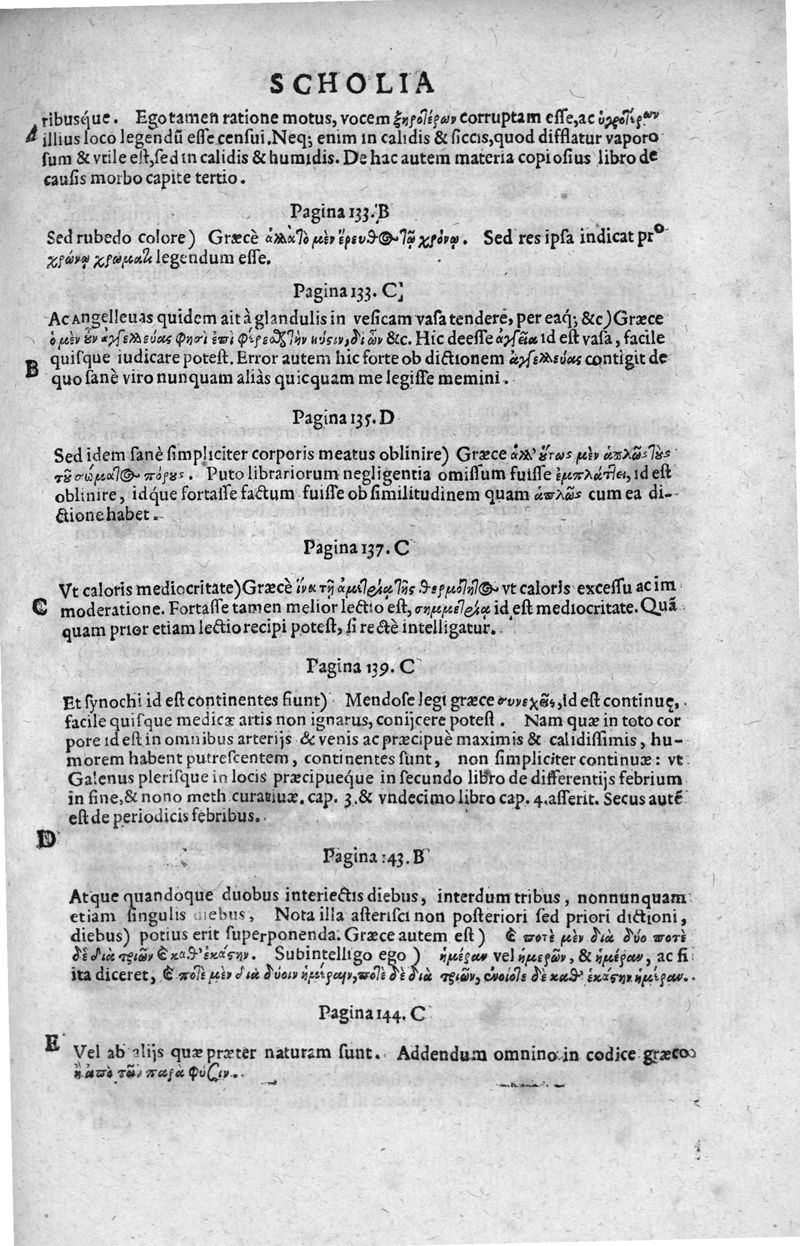 SCHOLIA
ribusq́ue. Ego tamen ratione motus, vocem ξηροτέρων corruptam eſſe, ac ὑγροτέρων
A
illius loco legendũ eſſe cenſui. Neq; enim in calidis & ſiccis, quod difflatur vaporo
ſum & vtile eſt, ſed in calidis & humidis. De hac autem materia copioſius libro de
cauſis morbo capite tertio.
Pagina 133. B
Sed rubedo colore) Græcè ἀλλὰ τὸ μὲν ἔρευθος τῷ χρόνῳ. Sed res ipſa indicat pro
χρώνῳ χρώματι legendum eſſe.
Pagina 133. C
Ac Angelleuas quidem ait à glandulis in veſicam vaſa tendere, per eaq; &c) Græce
ὁ μὲν οὖν ἀγγελλεύας φησὶ ἐπὶ φέρεσθ τὴν κύςιν, δι ὧν &c. Hic deeſſe ἀγγεῖα id eſt vaſa, facile
B
quiſque iudicare poteſt. Error autem hic forte ob dictionem ἀγγελλεύας contigit de
quo ſanè viro nunquam aliàs quicquam me legiſſe memini.
Pagina 135. D
Sed idem ſanè ſimpliciter corporis meatus oblinire) Græce ἀλλ' οὕτως μὲν ἁπλῶς τοὺς
τοῦ σώματος πόρους. Puto librariorum negligentia omiſſum fuiſſe ἐμπλάττει, id eſt
oblinire, idq́ue fortaſſe factum fuiſſe ob ſimilitudinem quam ἁπλῶς cum ea di-
ctione habet.
Pagina 137. C
Vt caloris mediocritate) Græcè ἵνα τῇ ἀμετρίᾳ τῆς θερμότητος vt caloris exceſſu ac im
C
moderatione. Fortaſſe tamen melior lectio eſt, σημμετρίᾳ id eſt mediocritate. Quã
quam prior etiam lectio recipi poteſt, ſi rectè intelligatur.
Pagina 139. C
Et ſynochi id eſt continentes fiunt) Mendoſe legi græce συνεχεῖς, id eſt continuę,
facile quiſque medicæ artis non ignarus, conijcere poteſt. Nam quæ in toto cor
pore id eſt in omnibus arterijs & venis ac præcipuè maximis & calidiſſimis, hu-
morem habent putreſcentem, continentes ſunt, non ſimpliciter continuæ: vt
Galenus pleriſque in locis præcipueque in ſecundo libro de differentijs febrium
in fine, & nono meth curatiuæ. cap. 3. & vndecimo libro cap. 4. aſſerit. Secus autẽ
eſt de periodicis febribus.
D
Pagina 143. B
Atque quandoque duobus interiectis diebus, interdum tribus, nonnunquam
etiam ſingulis diebus, Nota illa aſteriſci non poſteriori ſed priori dictioni,
diebus) potius erit ſuperponenda. Græce autem eſt) καὶ ποτὲ μὲν διὰ δύο ποτὲ
δὲ διὰ τριῶν καὶ καθ' ἑκάςην. Subintelligo ego) ἡμέραν vel ἡμερῶν, & ἡμέραν, ac ſi
ita diceret, καὶ ποτὲ μὲν διὰ δύοιν ἡμέραιν, ποτὲ δὲ διὰ τριῶν, ἐνοίοτε δὲ καθ ἑκάςην ἡμέραν.
Pagina 144. C
E
Vel ab alijs quæ præter naturam ſunt. Addendum omnino in codice græco
ἢ ἀπὸ τῶν παρα φύσιν.